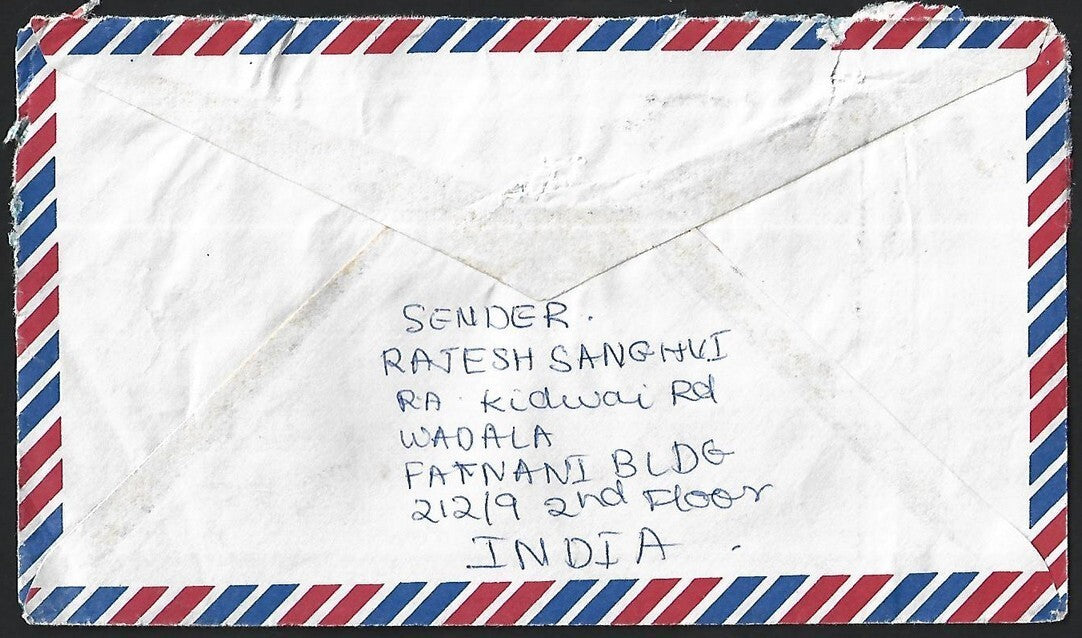 SENDER.
RAJESH SANGHVI
RA Kidwai Rd
WADALA
FATNANI BLDG
212/9 2nd Floor
INDIA.